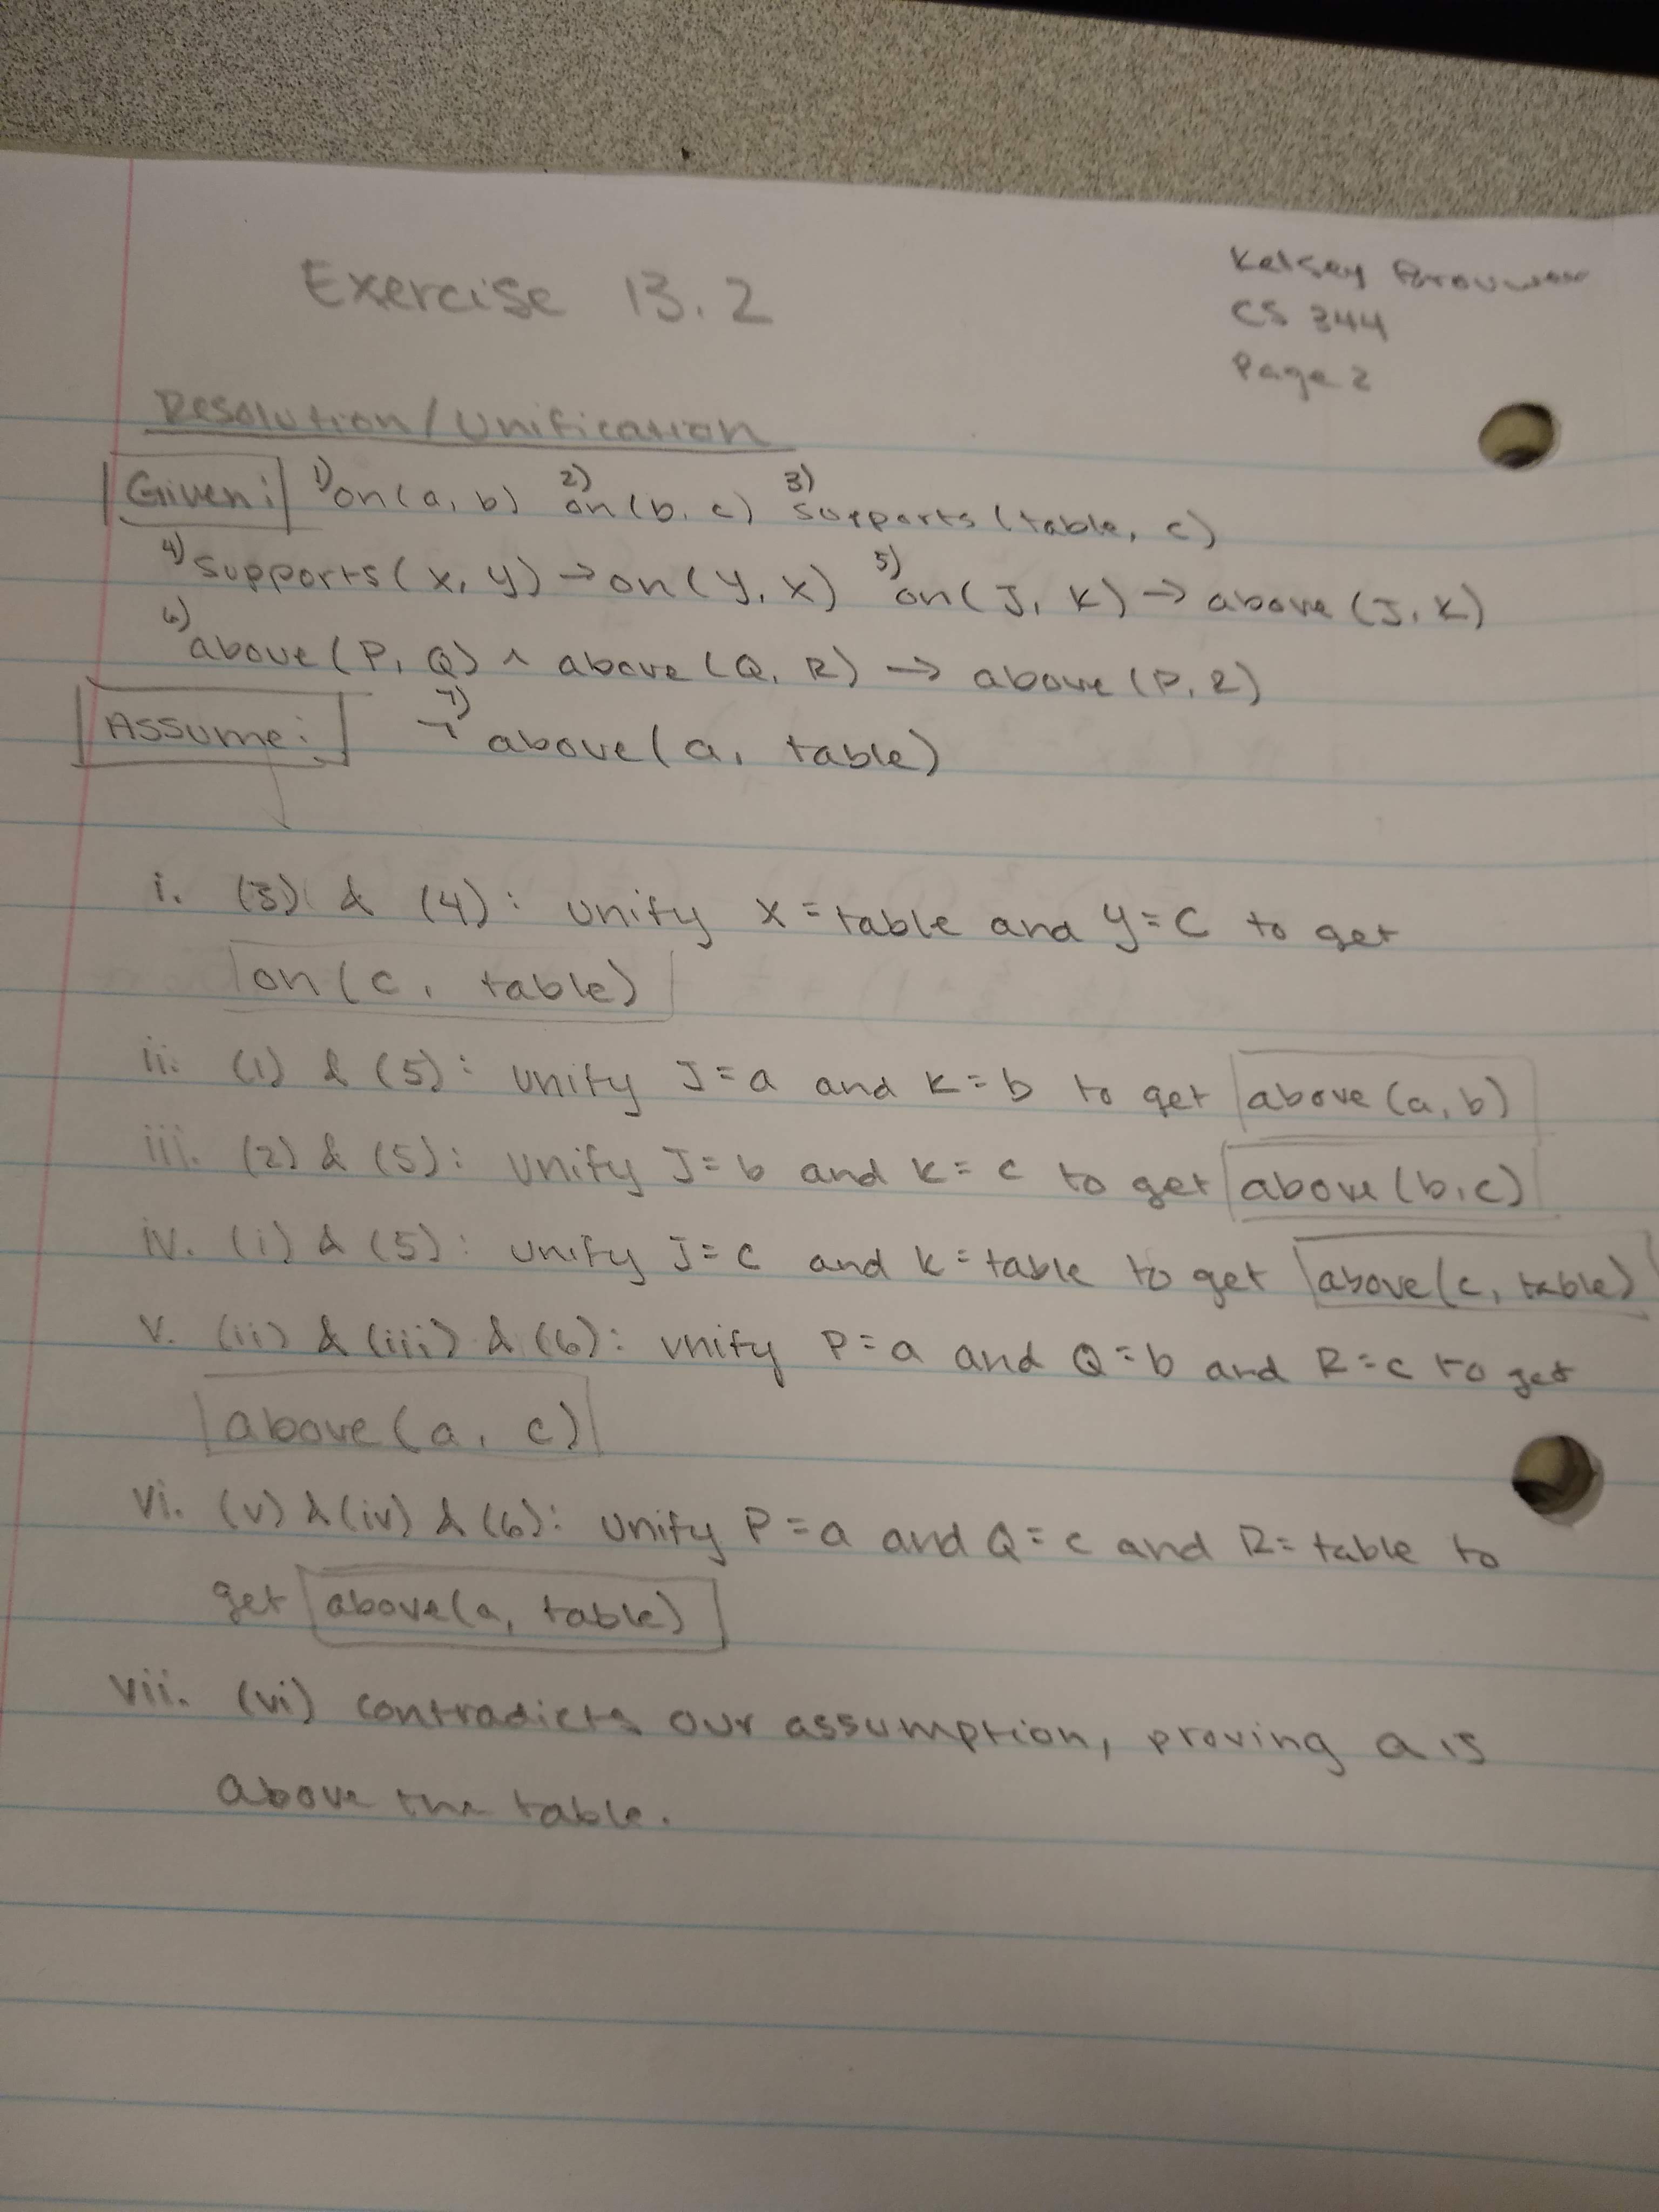 Exercise 13.2
Kelsey Brouwer
CS 344
Page 2
Resolution/Unification
Given: 1) on(a, b) 2) on(b, c) 3) supports(table, c)
4) supports(x, y) → on(y, x) 5) on(J, K) → above(J, K)
6) above(P, Q) ^ above(Q, R) → above(P, R)
Assume: 7) ¬ above(a, table)
i. (3) & (4): unify x = table and y = c to get
on(c, table)
ii. (1) & (5): unify J = a and K = b to get above(a, b)
iii. (2) & (5): unify J = b and K = c to get above(b, c)
iv. (i) & (5): unify J = c and K = table to get above(c, table)
v. (ii) & (iii) & (6): unify P = a and Q = b and R = c to get
above(a, c)
vi. (v) & (iv) & (6): unify P = a and Q = c and R = table to
get above(a, table)
vii. (vi) contradicts our assumption, proving a is
above the table.